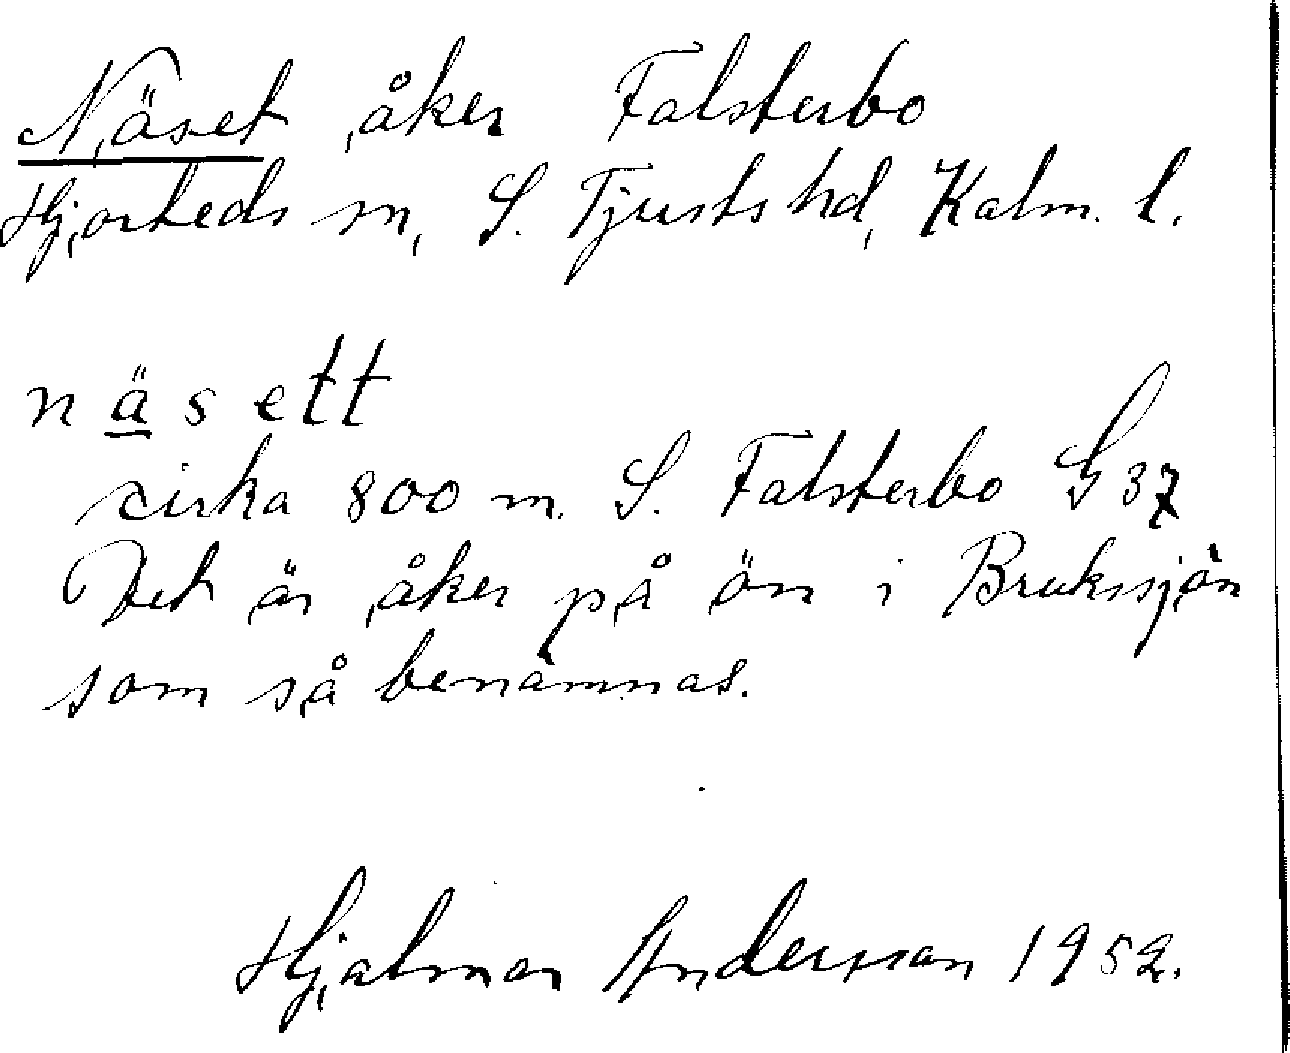 Näset åker Falsterbo
Hjorteds sn, S. Tjusts hd, Kalm. l.
näsett
cirka 800 m. S. Falsterbo G 37
Det är åker på ön i Brukssjön
som så benämnas.
Hjalmar Andersson 1952.